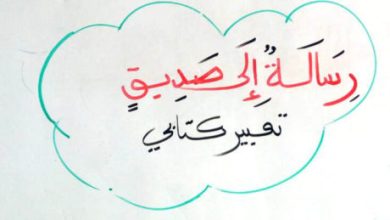 رِسَالَةٌ إِلَى صَدِيقٍ
تعبير كتابي